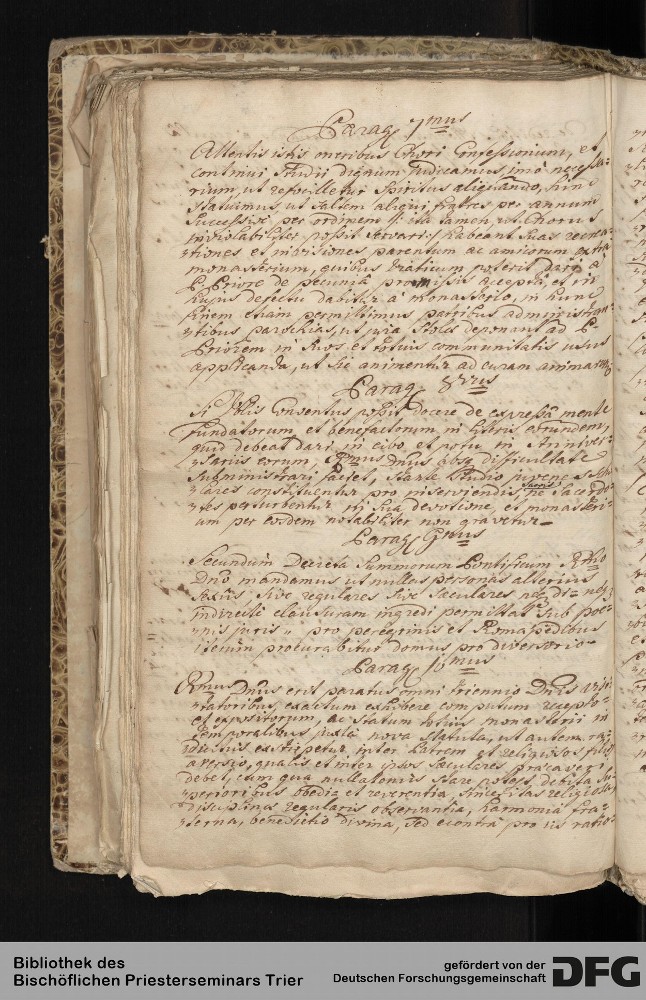 Parag 7mus
Attentis istis oneribus Chori Confessionum, et
continui studii dignum judicamus, imo necessa-
rium, ut refocilletur spiritus aliquando, hinc
statuimus ut saltem aliqui fratres per annum
successive per ordinem /: ita tamen, ut Chorus
inviolabiliter possit servari :/ habeant suas recrea-
tiones et invisiones parentum ac amicorum extra
monasterium, quibus viaticum poterit dari à
P. Priore de pecuniâ pro missis acceptâ, et in
hujus defectu dabitur à monasterio, in hunc
finem etiam permittimus patribus administran-
tibus parochias, ut jura stolæ deponant ad P.
Priorem in suos et totius communitatis usus
applicanda, ut sic animentur ad curam animarum
Parag 8vus
Si Ptlis Conventus possit docere de expressâ mente
fundatorum et benefactorum in litteris eorundem,
quid debeat dari in cibo et potu in Anniver-
sariis eorum, Rmus Dnus absq difficultate
subministrari faciet,
lares constituentur pro inserviendis sacris ne sacerdo-
tes perturbentur in sua devotione, et monasteri-
um per eosdem notabiliter non gravetur
Parag 9nus
Secundum Decreta Summorum Pontificum Rmo
Dno mandamus ut nullas personas alterius
sexûs, sive regulares sive sæculares nec dtæ neq
indirecté clausuram ingredi permittat sub poe-
nis juris, pro peregrinis et Romapedibus
iterum procurabitur domus pro diversorio
Parag 10mus
Rmus Dnus erit paratus omni triennio Dnis visi-
tatoribus exactum exhibere computum recepto-
et expositorum, ac statum totius monasterii in
temporalibus juxta nova statuta, ut autem ra-
dicitus exstirpetur inter Patrem et religiosos filios
aversio, qualis et inter ipsos sæculares præcaveri
debet, cum qua nullatenus stare potest debita su-
perioribus obedia et reverentia, sinceritas religiosa,
disciplinæ regularis observantia, harmonia fra-
terna, benedictio divina, sed econtra pro iis ratio-
Bibliothek des
Bischöflichen Priesterseminars Trier
gefördert von der
Deutschen Forschungsgemeinschaft
DFG